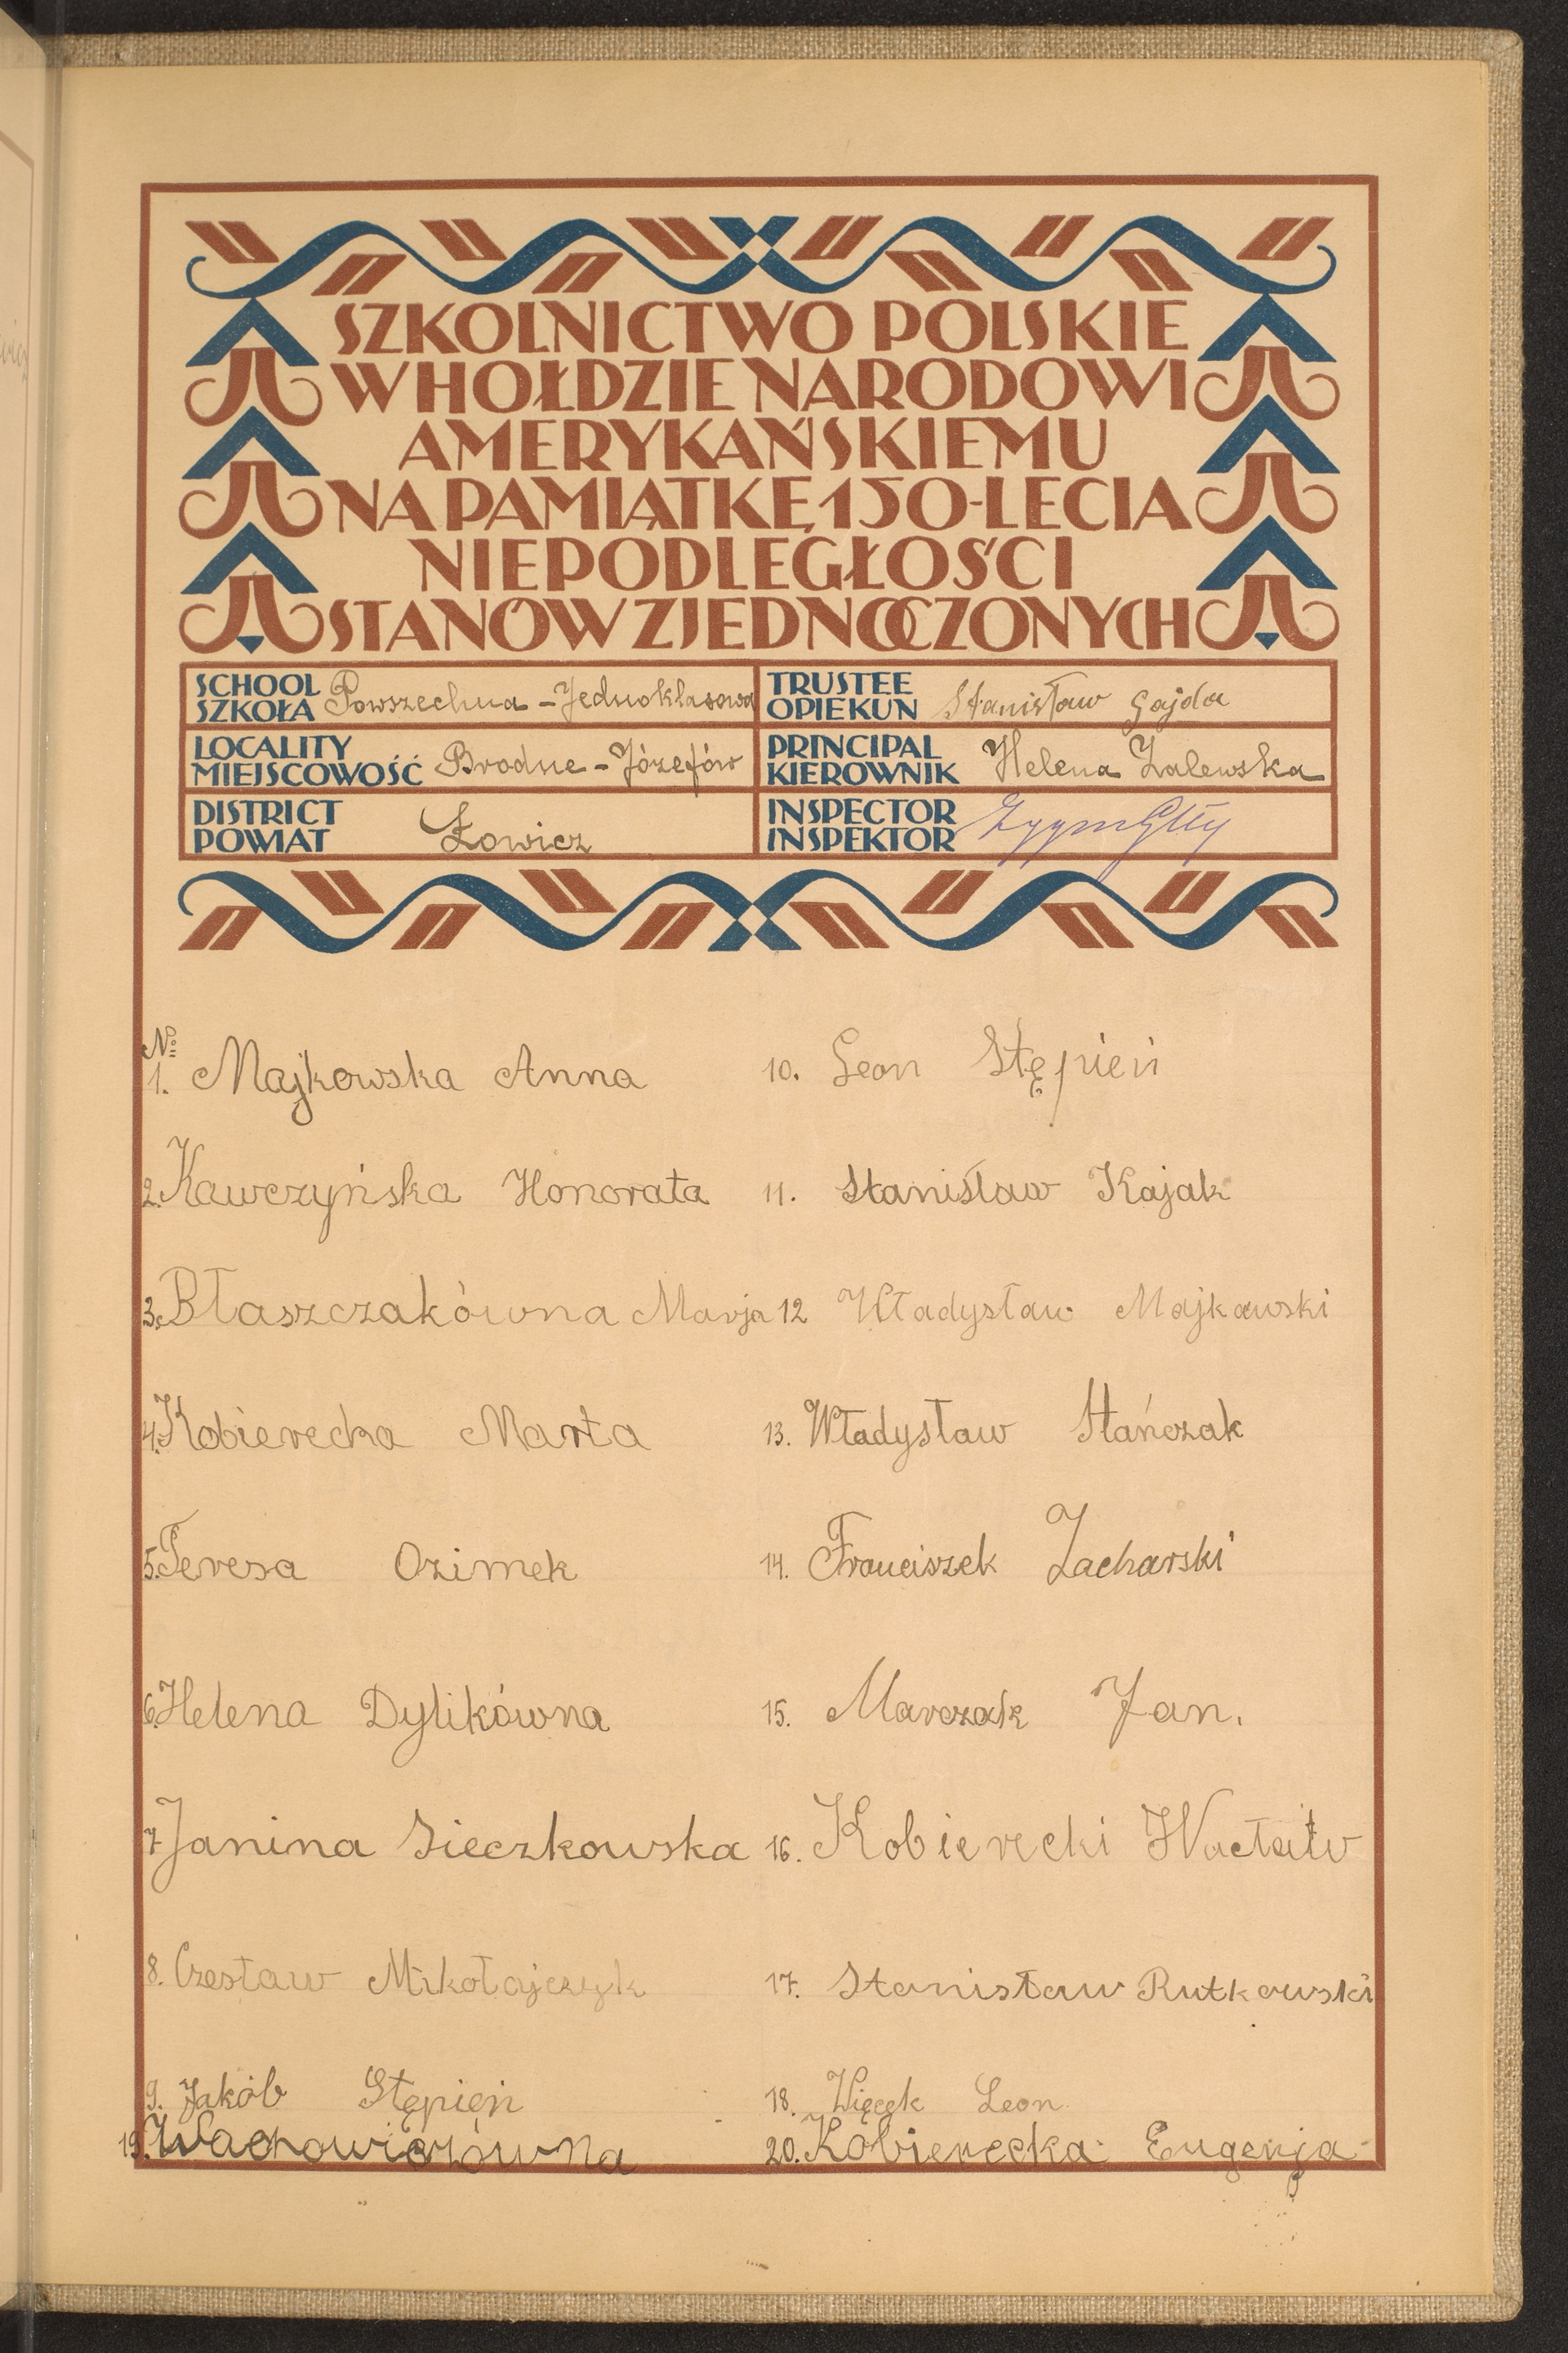 SZKOLNICTWO POLSKIE
W HOŁDZIE NARODOWI
AMERYKAŃSKIEMU
NA PAMIĄTKĘ 150-LECIA
NIEPODLEGŁOŚCI
STANÓW ZJEDNOCZONYCH
SCHOOL
SZKOŁA Powszechna - Jednoklasowa
TRUSTEE
OPIEKUN Stanisław Gajda
LOCALITY
MIEJSCOWOŚĆ Brodne - Józefów
PRINCIPAL
KIEROWNIK Helena Zalewska
DISTRICT
POWIAT Łowicz
INSPECTOR
INSPEKTOR
№
1. Majkowska Anna
2. Kawczyńska Honorata
3. Błaszczakówna Marja
4. Kobierecka Marta
5. Teresa Ozimek
6. Helena Dylikówna
7. Janina Sieczkowska
8. Czesław Mikołajczyk
9. Jakób Stępień
19. Wachowiczówna
10. Leon Stępień
11. Stanisław Kajak
12 Władysław Majkowski
13. Władysław Stańczak
14. Franciszek Zacharski
15. Marczak Jan.
16. Kobierecki Wacław
17. Stanisław Rutkowski
18. Leon
20. Kobierecka Eugenja